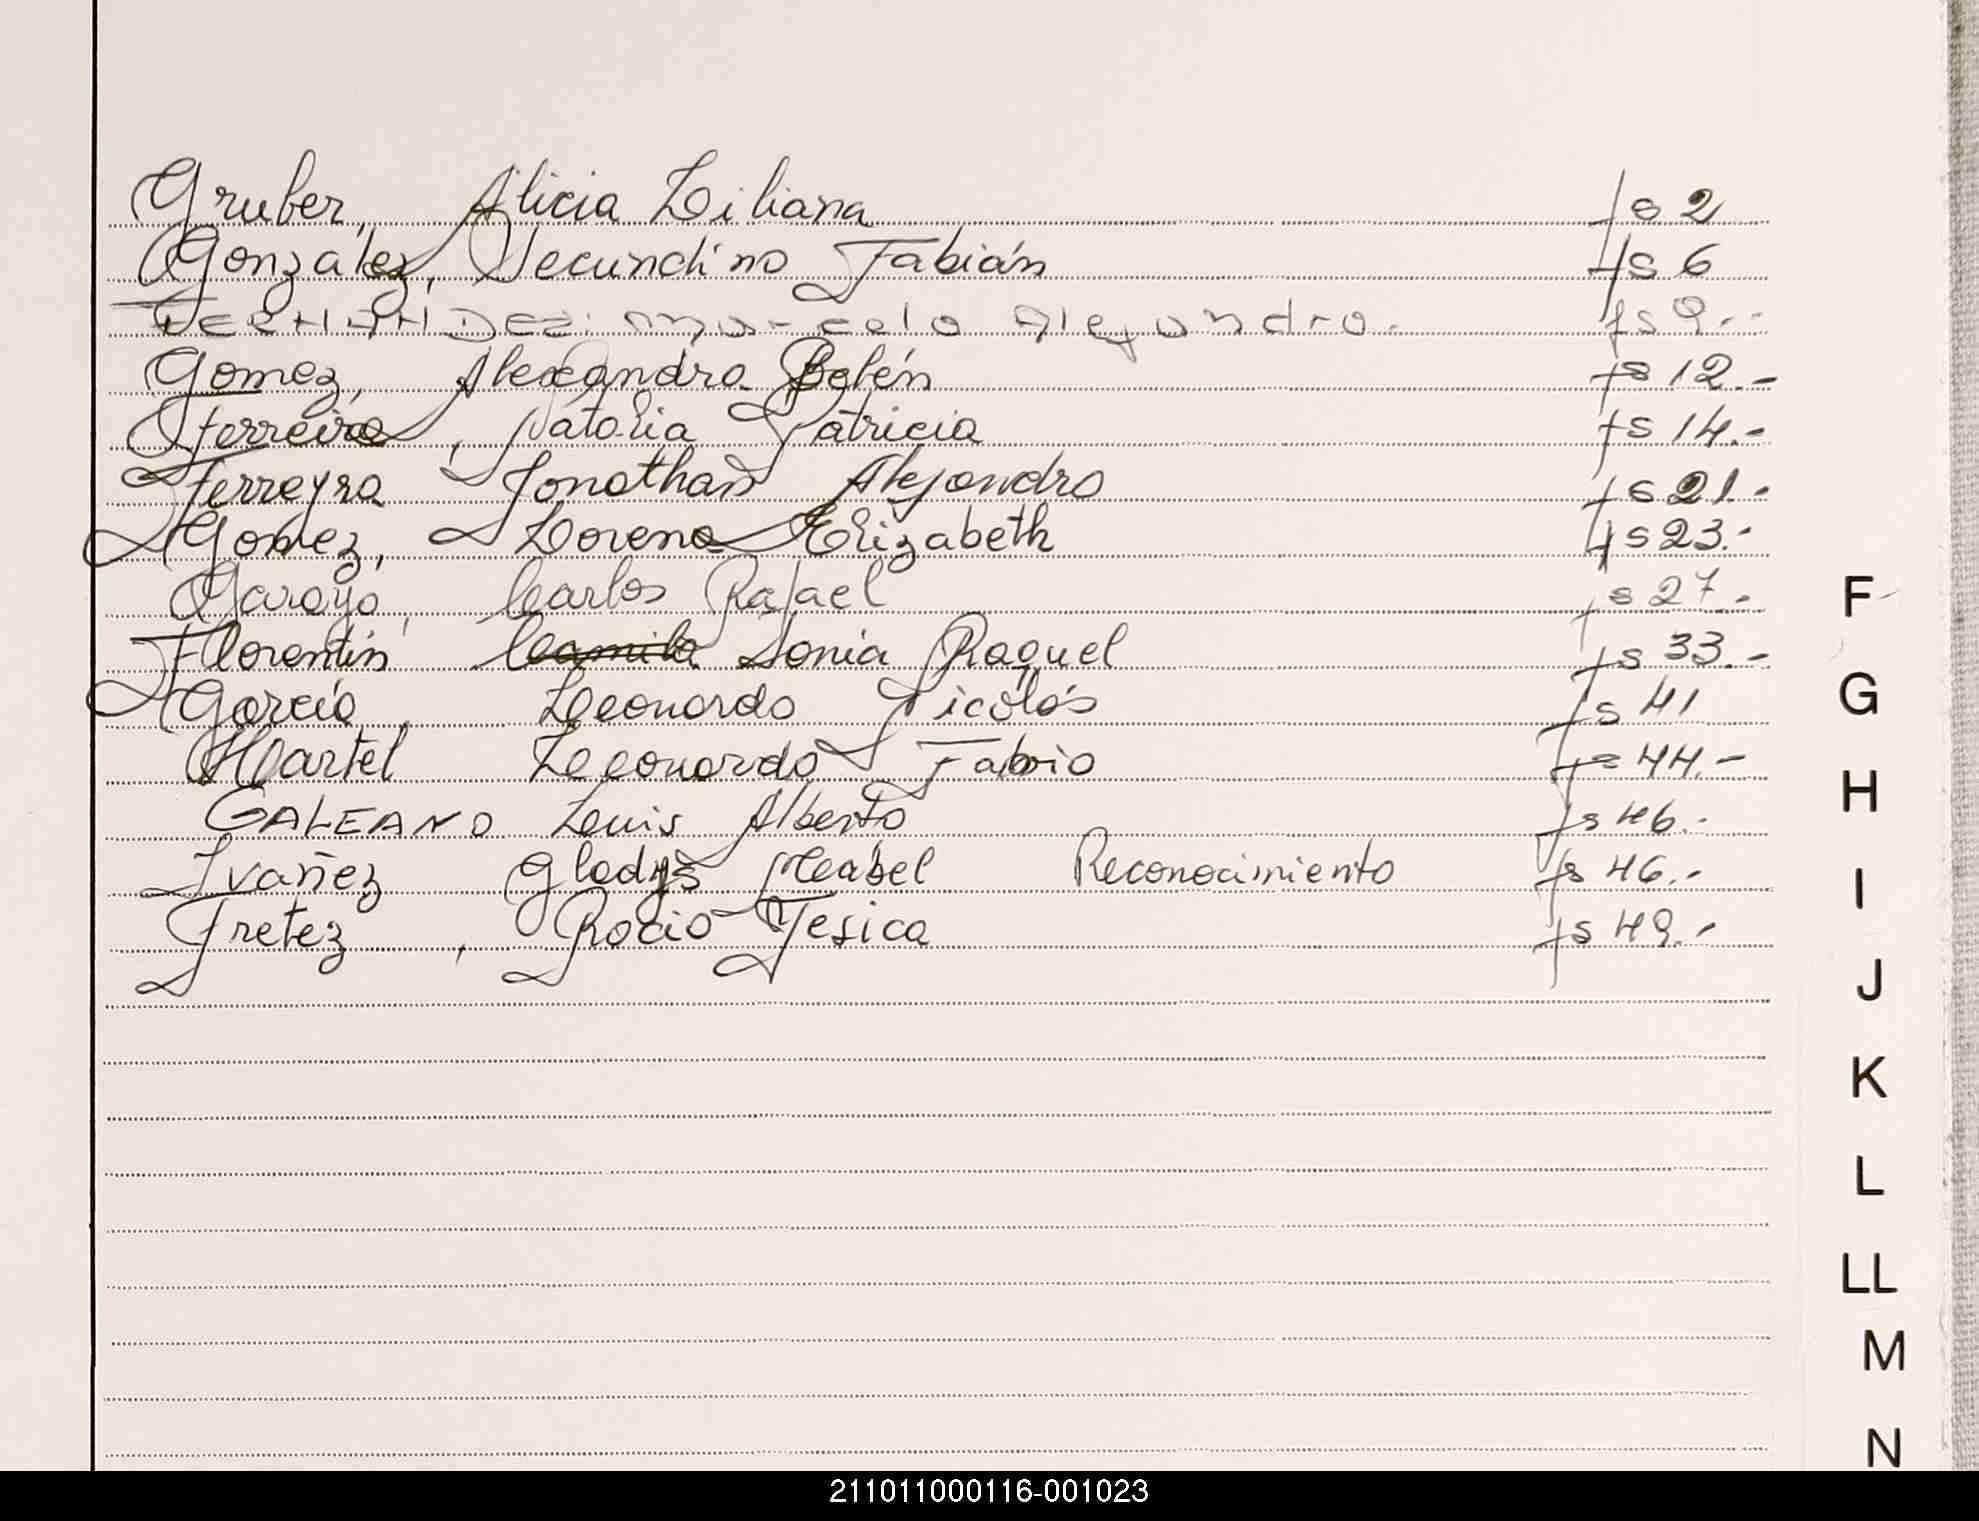 Gruber, Alicia Liliana fs 2
Gonzalez, Secundino Fabián fs 6
FERNANDEZ: Marcelo Alejandro. fs 9.-
Gomez, Alexandra Belén fs 12.-
Ferreira, Natalia Patricia fs 14.-
Ferreyra Jonathan Alejandro fs 21.-
Gomez, Lorena Elizabeth fs 23.-
Garayo, Carlos Rafael fs 27.-
Florentín Camila Sonia Raquel fs 33.-
García, Leonardo Nicolás fs 41
Hartel Leonardo Fabio fs 44.-
GALEANO Luis Alberto fs 46.-
Ivañez Gladys Mabel Reconocimiento fs 46.-
Fretez, Rocio Jesica fs 49.-
F
G
H
I
J
K
L
LL
M
N
211011000116-001023